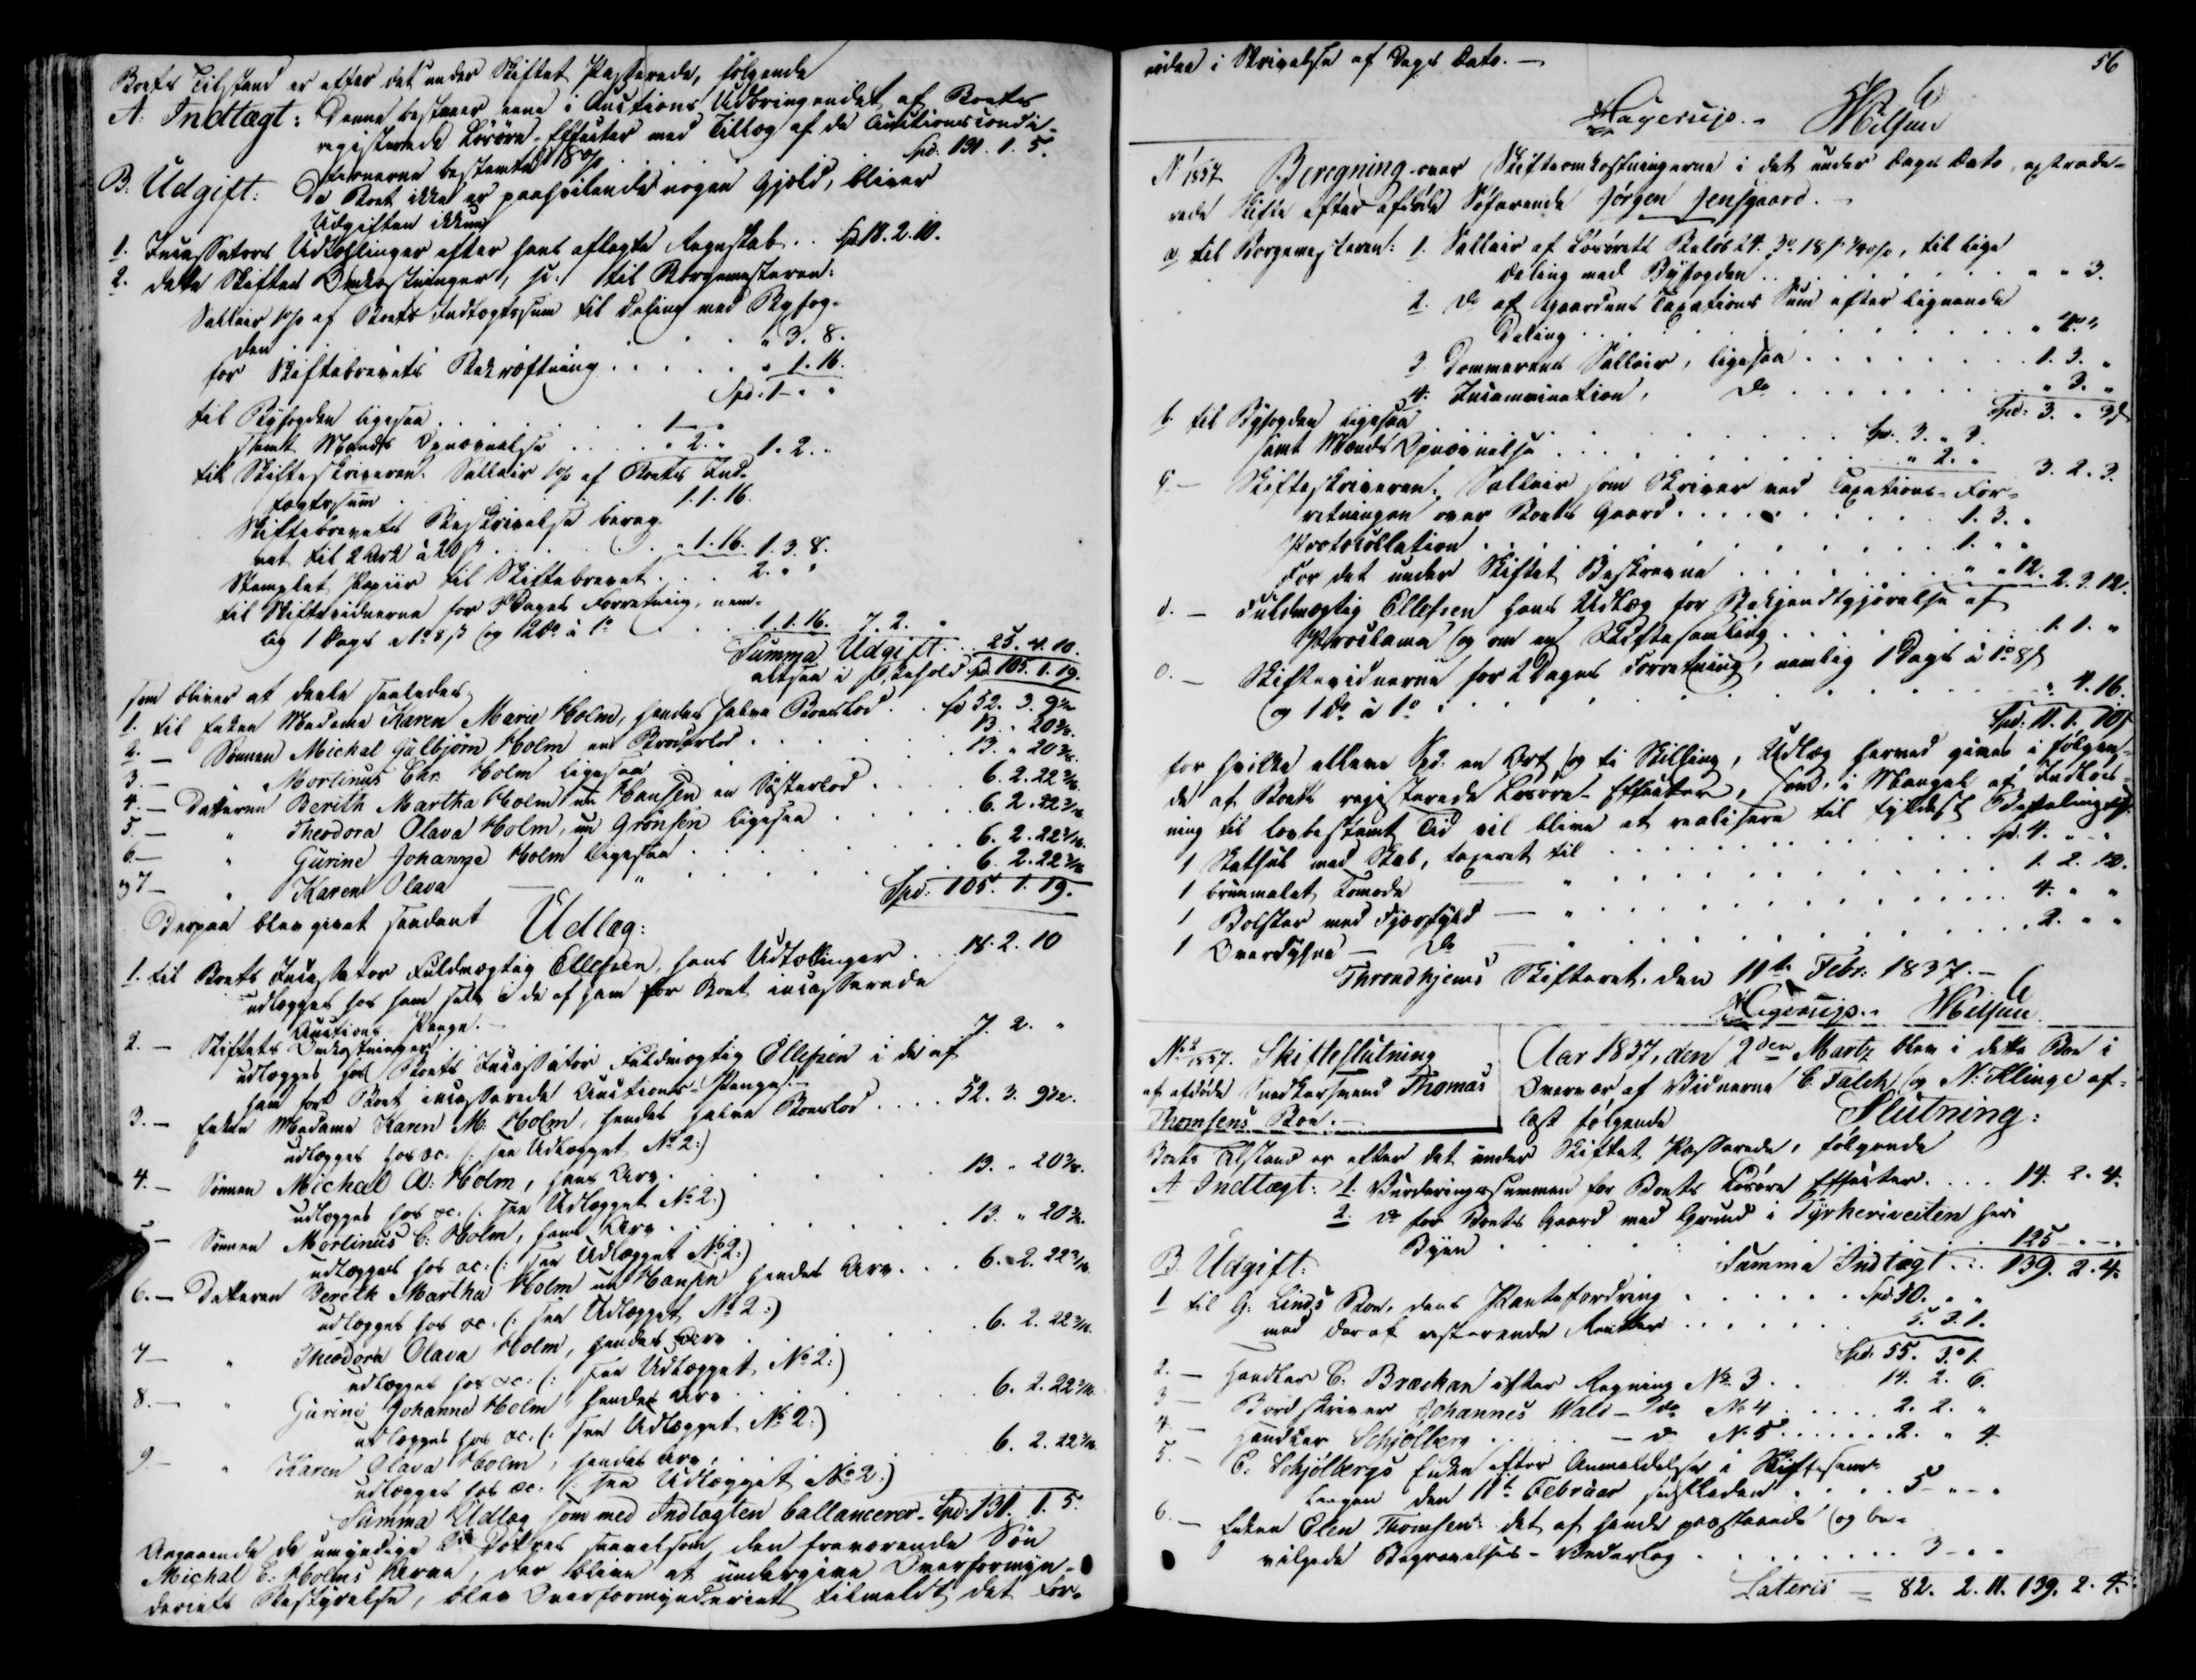 Boets Tilstand er efter det under Skiftet Passerede, følgende
A. Indtægt: Denne bestaaer ene i Auctions Udbringendet af Boets
registerede Løsøre-Effecter med Tillæg af de Auctionscondi-
tionerne bestemte 8 % Spd. 131. 1. 5.
B. Udgift: Da Boet ikke er paahvilende nogen Gjæld, bliver
Udgiften ikkun
1. Incassators Udtællinger efter hans aflagte Regnskab . . Spd 18. 2. 10.
2. dette Skiftes Omkostninger, til Borgemesteren:
Sallair % af Boets Indtægtssum til Deling med Byfog-
den . . . " 3. 8.
for Skiftebrevets Bekræftning . . . . " 1. 16.
Spd: 1 - " "
til Byfogden ligesaa . . . 1 - "
samt Mænds Opnævnelse . . . " 2. " 1. 2. "
til Skifteskriveren: Sallair % af Boets Ind-
tægtssum . . . 1. 1. 16.
Skiftebrevets Beskrivelse bereg-
net til 2 Ark à 20 ß . . . " 1. 16. 1. 3. 8.
Stemplet Papiir til Skiftebrevet . . . 2. " "
til Skiftevidnerne for Dages Forretning, nem-
lig 1 Dags à 1 8 ß og 12 do à 1 . . . 1. 1. 16. 7. 2. "
Summa Udgift . . 25. 4. 10.
altsaa i Behold Spd. 105. 1. 19.
som bliver at deele saaledes
1. til Enken Madame Karen Marie Holm, hendes halve Boeslod . . Spd 52. 3. 9½
2. — Sønnen Michal Gulbjørn Holm en Broderlod . . . 13. " 20⅜.
3. — Mortinus Chr. Holm ligesaa . . . 13. " 20⅜.
4. — Datteren Berith Martha Holm nu Hansen en Søsterlod . . . 6. 2. 22 3/16.
5. — " Theodora Olava Holm, nu Grønsen ligesaa . . . 6. 2. 22 3/16.
6. — " Gurine Johanne Holm ligesaa . . . 6. 2. 22 3/16.
og 7 — " Karen Olava — " . . . 6. 2. 22 3/16
Spd: 105. 1. 19.
Derpaa blev givet saadant Udlæg:
1. til Boets Incassator Fuldmægtig Ellefsen, hans Udtællinger . . 18. 2. 10
udlægges hos ham selv i de af ham for Boet incasserede
Auctions Penge. —
2. — Skiftets Omkostninger . . . 7. 2. "
udlægges hos Boets Incassator Fuldmægtig Ellefsen i de af
ham for Boet incasserede Auctions-Penge. —
3. — Enken Madame Karen M. Holm, hendes halve Boeslod . . . . 52. 3. 9½.
udlægges hos &c. (: see Udlægget No 2:)
4. — Sønnen Michael G: Holm, hans Arv . . . 13. " 20⅜.
udlægges hos &c. (: see Udlægget No 2:)
5 — Sønnen Mortinus C: Holm, hans Arv . . . 13. " 20⅜.
udlægges hos &c: (: see Udlægget No 2:)
6. — Datteren Berith Martha Holm nu Hansen hendes Arv . . . 6. 2. 22 3/16.
udlægges hos &c. (: see Udlægget No 2:)
7 — " Theodora Olava Holm, hendes Arv . . . 6. 2. 22 3/16.
udlægges hos &c: (: see Udlægget No 2:)
8. — " Gurine Johanne Holm, hendes Arv . . . 6. 2. 22 3/16.
udlægges hos &c. (: see Udlægget No 2:)
9. — " Karen Olava Holm, hendes Arv . . . 6. 2. 22 3/16.
udlægges hos &c. (: see Udlægget No 2:)
Summa Udlæg som med Indtægten ballancerer. Spd: 131. 1. 5.
Angaaende de umyndige Døttres saavelsom den fraværende Søn
Michal C: Holms Arve, der blive at undergive Overformyn-
deriets Bestyrelse, blev Overformynderiet tilmeldt det For-
56
nødne i Skrivelse af Dags Dato. —
Hagerup. Nilsen
No 1837 Beregning over Skifteomkostningerne i det under Dags Dato extrade-
rede Skifte efter afdøde Søfarende Jørgen Jensgaard. —
a, til Borgemesteren: 1. Sallair af Løsørets Beløb 24. 3. 18 ß %, til lige
Deling med Byfogden . . . " " 3.
2. do af Gaardens Taxations Sum efter lignende
Deling . . . " 4 "
3. Dommerens Sallair, ligesaa . . . 1. 3. "
4. Incamination, do . . . " 3. "
Spd: 3. " 3 ß
b. til Byfogden ligesaa . . . Spd. 3. " 3.
samt Mænds Opnævnelse . . . " 2. " 3. 2. 3.
c. — Skifteskriveren: Sallair som Skriver ved Taxations-For-
retningen over Boets Gaard . . . 1. 3. "
Protokollation . . . 1. " "
For det under Skiftet Beskrevne . . . " " 12. 2. 3. 12.
d. — Fuldmægtig Ellefsen hans Udlæg for Bekjendtgjørelse af
Proclama og om en Skiftesamling . . . 1. 1. "
e. — Skiftevidnerne for 2 Dages Forretning, nemlig 1 Dags à 1 8 ß
og 1 do à 1 . . . " 4. 16.
Spd: 11. 1. 10 ß
for hvilke elleve Spd. en Ort og ti Skilling, Udlæg herved gives i følgen-
de af Boets registerede Løsøre-Effecter, som, i Mangel af Indløs-
ning til lovbestemt Tid vil blive at realisere til fyldest Betaling
1 med Skab, taxeret til . . . Spd. 4. " "
1 bruunmalet Comode — " . . . 1. 2. 12.
1 Bolster med Fjærfyld — " . . . 4. " "
1 Overdyhne — do — " . . . 2. " "
Throndhjems Skifteret. den 11te Febr. 1837. —
Hagerup. Nilsen
No 2 1837. Skifteslutning
efter afdøde Snedkersvend Thomas
Thomsens Boe. —
Aar 1837, den 2den Martz blev i dette Boe i
Overvær af Vidnerne C. Falch og N: Klinge af-
læst følgende Slutning:
Boets Tilstand er efter det under Skiftet Passerede, følgende
A Indtægt: 1. Vurderingssummen for Boets Løsøre Effecter . . . . 14. 2. 4.
2. do for Boets Gaard med Grund i Fyrheriveiten her i
Byen . . . 125 - " - "
Summa Indtægt . . : 139. 2. 4.
B. Udgift:
1 til G. Linds Boe, dens Pantefordring . . . Spd 50. " "
med deraf resterende Renter . . . 5. 3. 1.
Spd. 55. 3. 1.
2. — Handler C. Brækan efter Regning No 3 . . . 14. 2. 6.
3 — Bordskriver Johannes Wald — do No 4 . . . 2. 2. "
4. — Handler Schjølberg . . . — do No 5 . . . 2. " 4.
5. — C. Schjølbergs Enke efter Anmeldelse i Skiftesam-
lingen den 11te Februar sidstleden . . . 5 - " - "
6. — Enken Elen Thomsen: det af hende præsterede og be-
vilgede Begravelses-Vederlag . . . 3 - " "
Lateris = 82. 2. 11. 139. 2. 4.